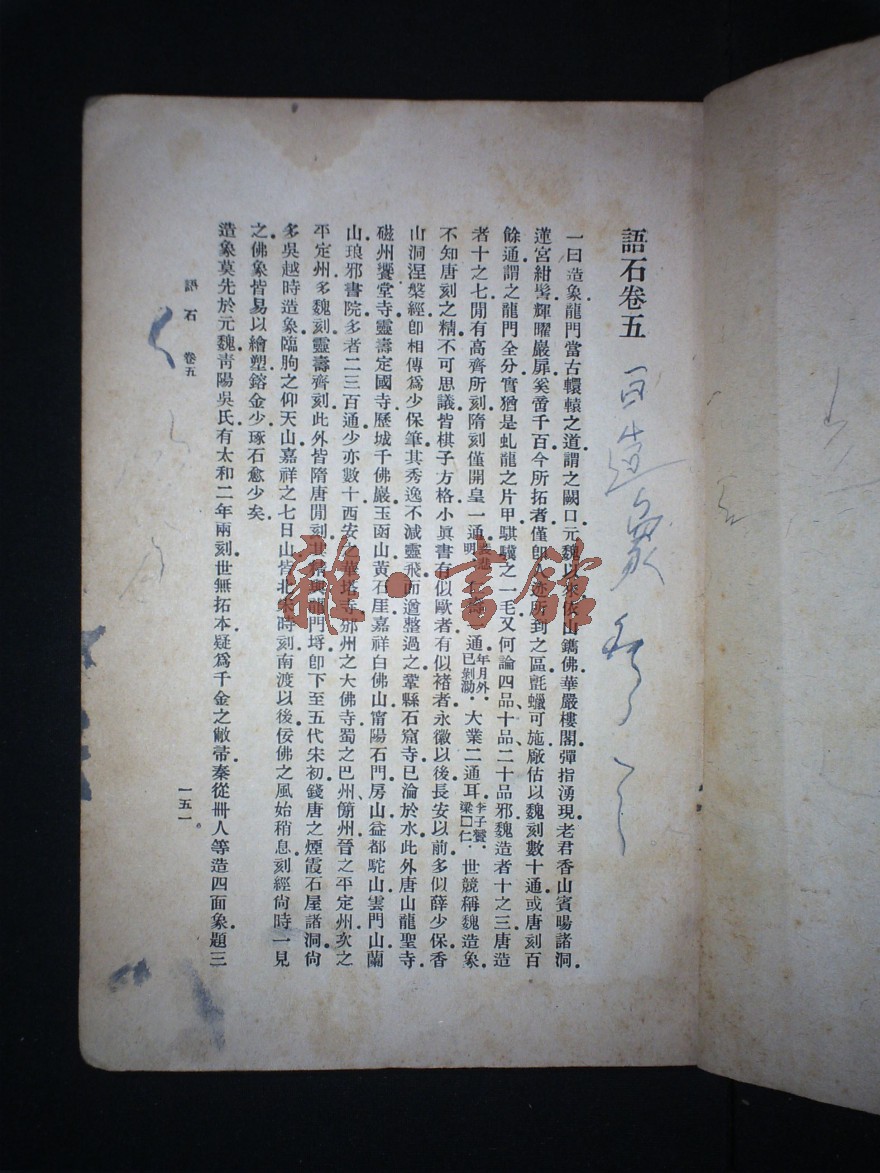 語石卷五
一曰造象龍門當古轘轅之道謂之闕口元魏以來依山鐫佛華嚴樓閣彈指湧現老君香山賓暘諸洞
蓮宮紺髻輝曜巖扉奚啻千百今所拓者僅卽人迹所到之區氈蠟可施廠估以魏刻數十通或唐刻百
餘通謂之龍門全分實猶是虬龍之片甲騏驥之一毛又何論四品十品二十品邪魏造者十之三唐造
者十之七閒有高齊所刻隋刻僅開皇一通 通年月外已剝泐大業二通耳李子贇梁囗仁世競稱魏造象
不知唐刻之精不可思議皆棋子方格小眞書有似歐者有似褚者永徽以後長安以前多似薛少保香
山洞涅槃經卽相傳爲少保筆其秀逸不減靈飛而遒整過之鞏縣石窟寺已淪於水此外唐山龍聖寺
磁州饗堂寺靈壽定國寺歷城千佛巖玉函山黃石厓嘉祥白佛山甯陽石門房山益都駝山雲門山蘭
山琅邪書院多者二三百通少亦數十西安之華塔寺邠州之大佛寺蜀之巴州簡州晉之平定州次之
平定州多魏刻靈壽齊刻此外皆隋唐閒刻其精與龍門埒卽下至五代宋初錢唐之煙霞石屋諸洞尙
多吳越時造象臨朐之仰天山嘉祥之七日山皆北宋時刻南渡以後佞佛之風始稍息刻經尙時一見
之佛象皆易以繪塑鎔金少琢石愈少矣
造象莫先於元魏靑陽吳氏有太和二年兩刻世無拓本疑爲千金之敝帚秦從卌人等造四面象題三
語石 卷五
一五一
造象
雜·書館